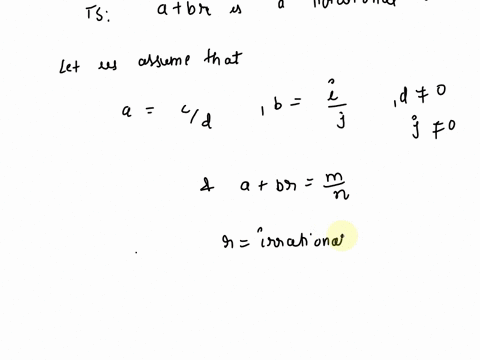 TS: a + br is a irrational
Let us assume that
a = c/d , b = i/j , d ≠ 0
j ≠ 0
& a + br = m/n
r = irrational